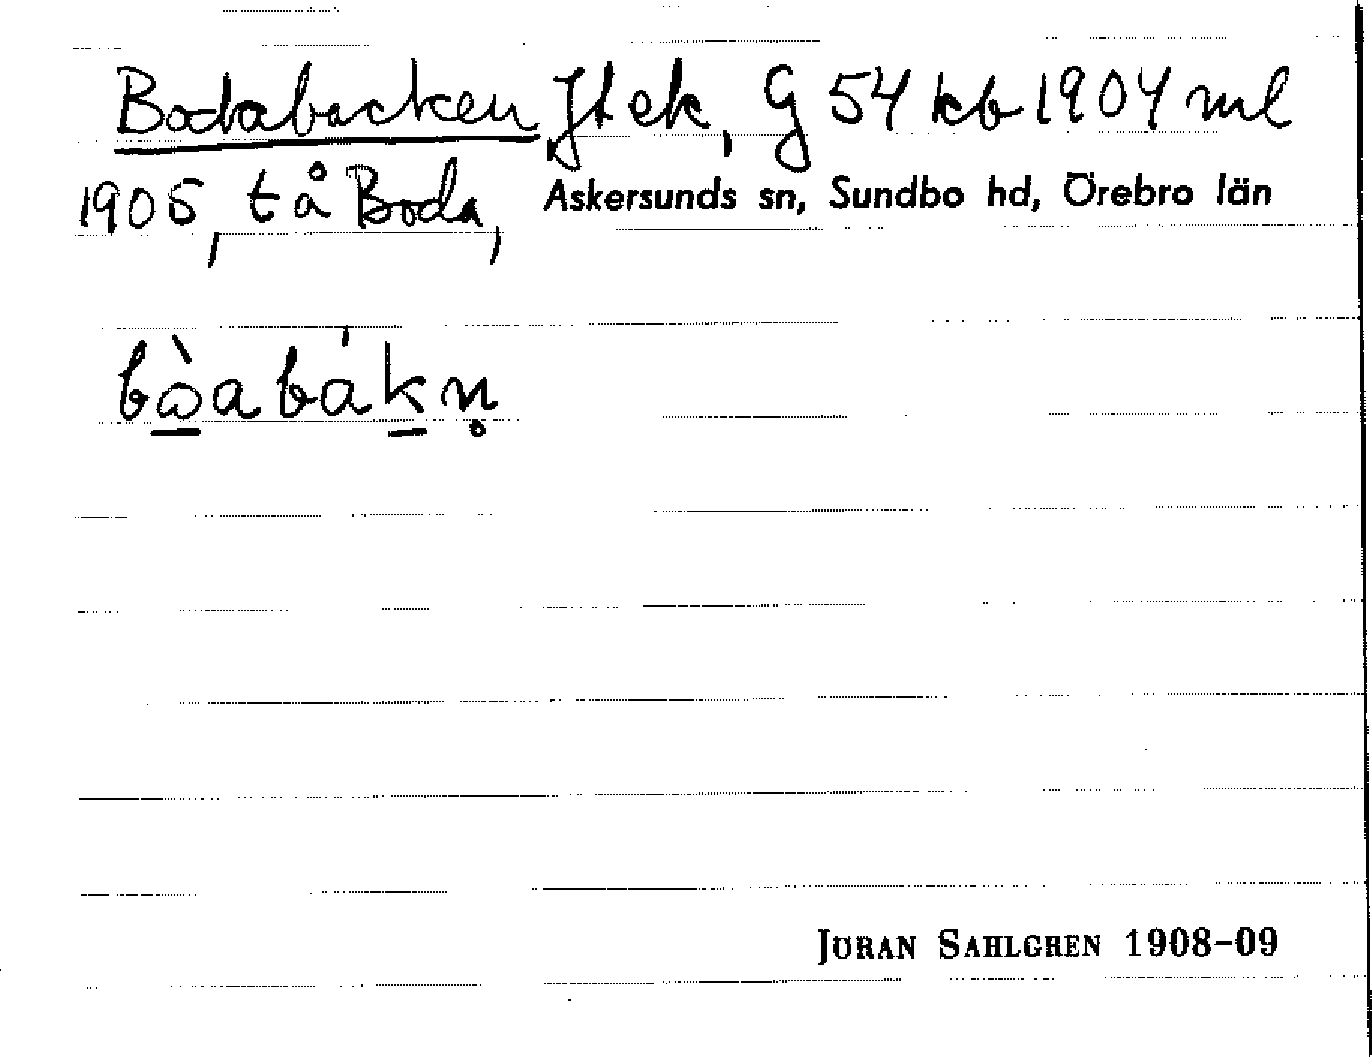 Bodabacken Jt ek, G 54 kb 1904 ml
1905, tå Boda, Askersunds sn, Sundbo hd, Örebro län
bòabákn̥
JÖRAN SAHLGREN 1908-09